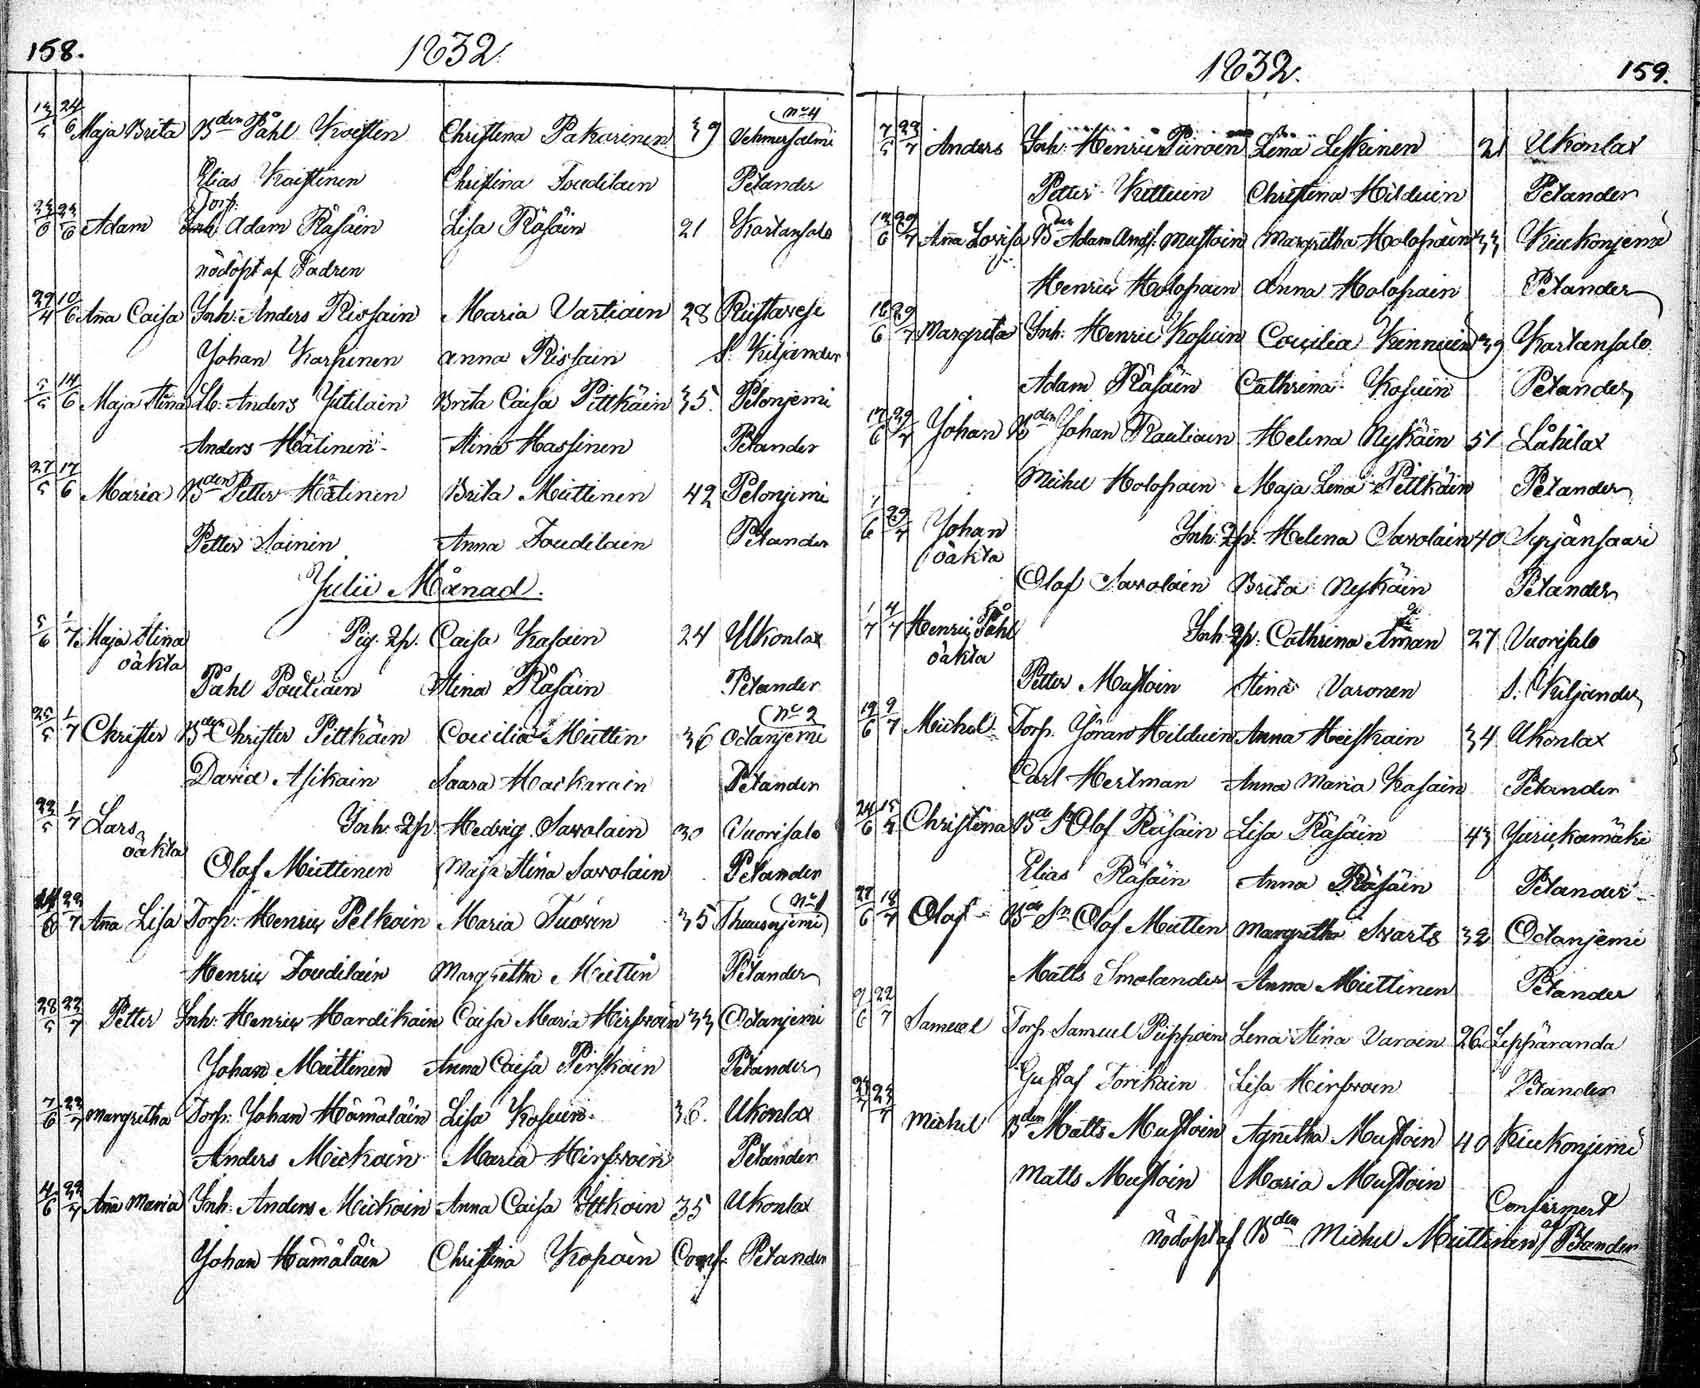 158.
1832.
13/5 24/6 Maja Brita Bden Påhl Koisten Christina Pakarinen 39 No 4 Vehmersalmi
Elias Koistinen Christina Toudilain Pelander
24/6 Adam Torp: Inh: Adam Räsäin Lisa Räsäin 21 Kartansalo
nödöpt af Fadren
29/4 10/6 Aña Caisa Inh: Anders Rissain Maria Vartiain 28 Ristavesi
Johan Karpinen Anna Rissain S. Kiljander
5/5 14/6 Maja Stina Lb. Anders Jutilain Brita Caisa Pittkäin 35. Pelonjemi
Anders Hälinen Stina Hassinen Pelander
27/5 17/6 Maria Bden Petter Hälinen Brita Miettinen 42 Pelonjemi
Petter Sainin Anna Toudilain Pelander
Julii Månad.
5/6 1/7 Maja Stina Pig. 2p. Caisa Kasain 24 Ukonlax
oäkta
Påhl Poutiain Stina Räsäin Pelander
25/5 1/7 Christer Bden Christer Pittkäin Coecilia Miettin 36 No 2 Oetanjemi
David Asikain Saara Hackarain Pelander
22/5 1/7 Lars Inh: 2p. Hedvig Savolain 30 Vuorisalo
oäkta
Olof Miettinen Maja Stina Savolain Pelander
22/7 Aña Lisa Torp: Henric Pelkoin Maria Tuovin 35 No 1
Henric Toudilain Margretha Miettin Pelander
28/5 22/7 Petter Inh: Henric Hardikain Caisa Maria Hirsvoin 33 Oetanjemi
Johan Miettinen Anna Caisa Pirskain Pelander
7/6 22/7 Margretha Torp: Johan Hämäläin Lisa Kosuin 36. Ukonlax
Anders Mickain Maria Hirsvoin Pelander
4/6 22/7 Aña Maria Inh: Anders Mickoin Anna Caisa Ittkoin 35 Ukonlax
Johan Hämäläin Christina Kopoin Conf: Pelander
1832.
159.
7/5 29/7 Anders Inh: Henric Piiroin Lena Leskinen 21 Ukonlax
Petter Kettuin Christina Hilduin Pelander
12/6 29/7 Aña Lovisa Bden Adam And: Mustoin Margretha Holopain 33 Kiukonjemi
Henric Holopain Anna Holopain Pelander
16/6 29/7 Margreta Inh: Henric Kosuin Coecilia Kinnuin 39 Kartansalo
Adam Räsäin Cathrina Kosuin Pelander
17/6 29/7 Johan Bden Johan Rautiain Helena Nykäin 51 Låhilax
Michel Holopain Maja Lena Pittkäin Pelander
1/6 29/7 Johan Inh: 2p: Helena Savolain 40 Syrjänsaari
oäkta
Olof Savolain Brita Nykäin Pelander
1/7 4/7 Henric Påhl Inh: 2p: Cathrina Åman 27 Vuorisalo
oäkta
Petter Mustoin Stina Varonen S. Kiljander
19/6 9/7 Michel Torp. Jöran Hilduin Anna Heiskain 34 Ukonlax
Carl Hertman Anna Maria Kasain Pelander
24/6 15/7 Christina Bde Sn Olof Räsäin Lisa Räsäin 43 Jurickamäki
Elias Räsäin Anna Räsäin Pelander
27/6 18/7 Olof Bde Sn Olof Mietten Margretha Svarts 32 Oetanjemi
Matts Smolander Anna Miettinen Pelander
9/6 22/7 Samuel Torp Samuel Piippoin Lena Stina Varoin 26. Leppäranda
Gustaf Torikain Lisa Hirsvoin Pelander
23/7 Michel Bden Matts Mustoin Agnetha Mustoin 40 Kiukonjemi
Matts Mustoin Maria Mustoin
Confirmert
nödöpt af Bden Michel Miettinen af Pelander